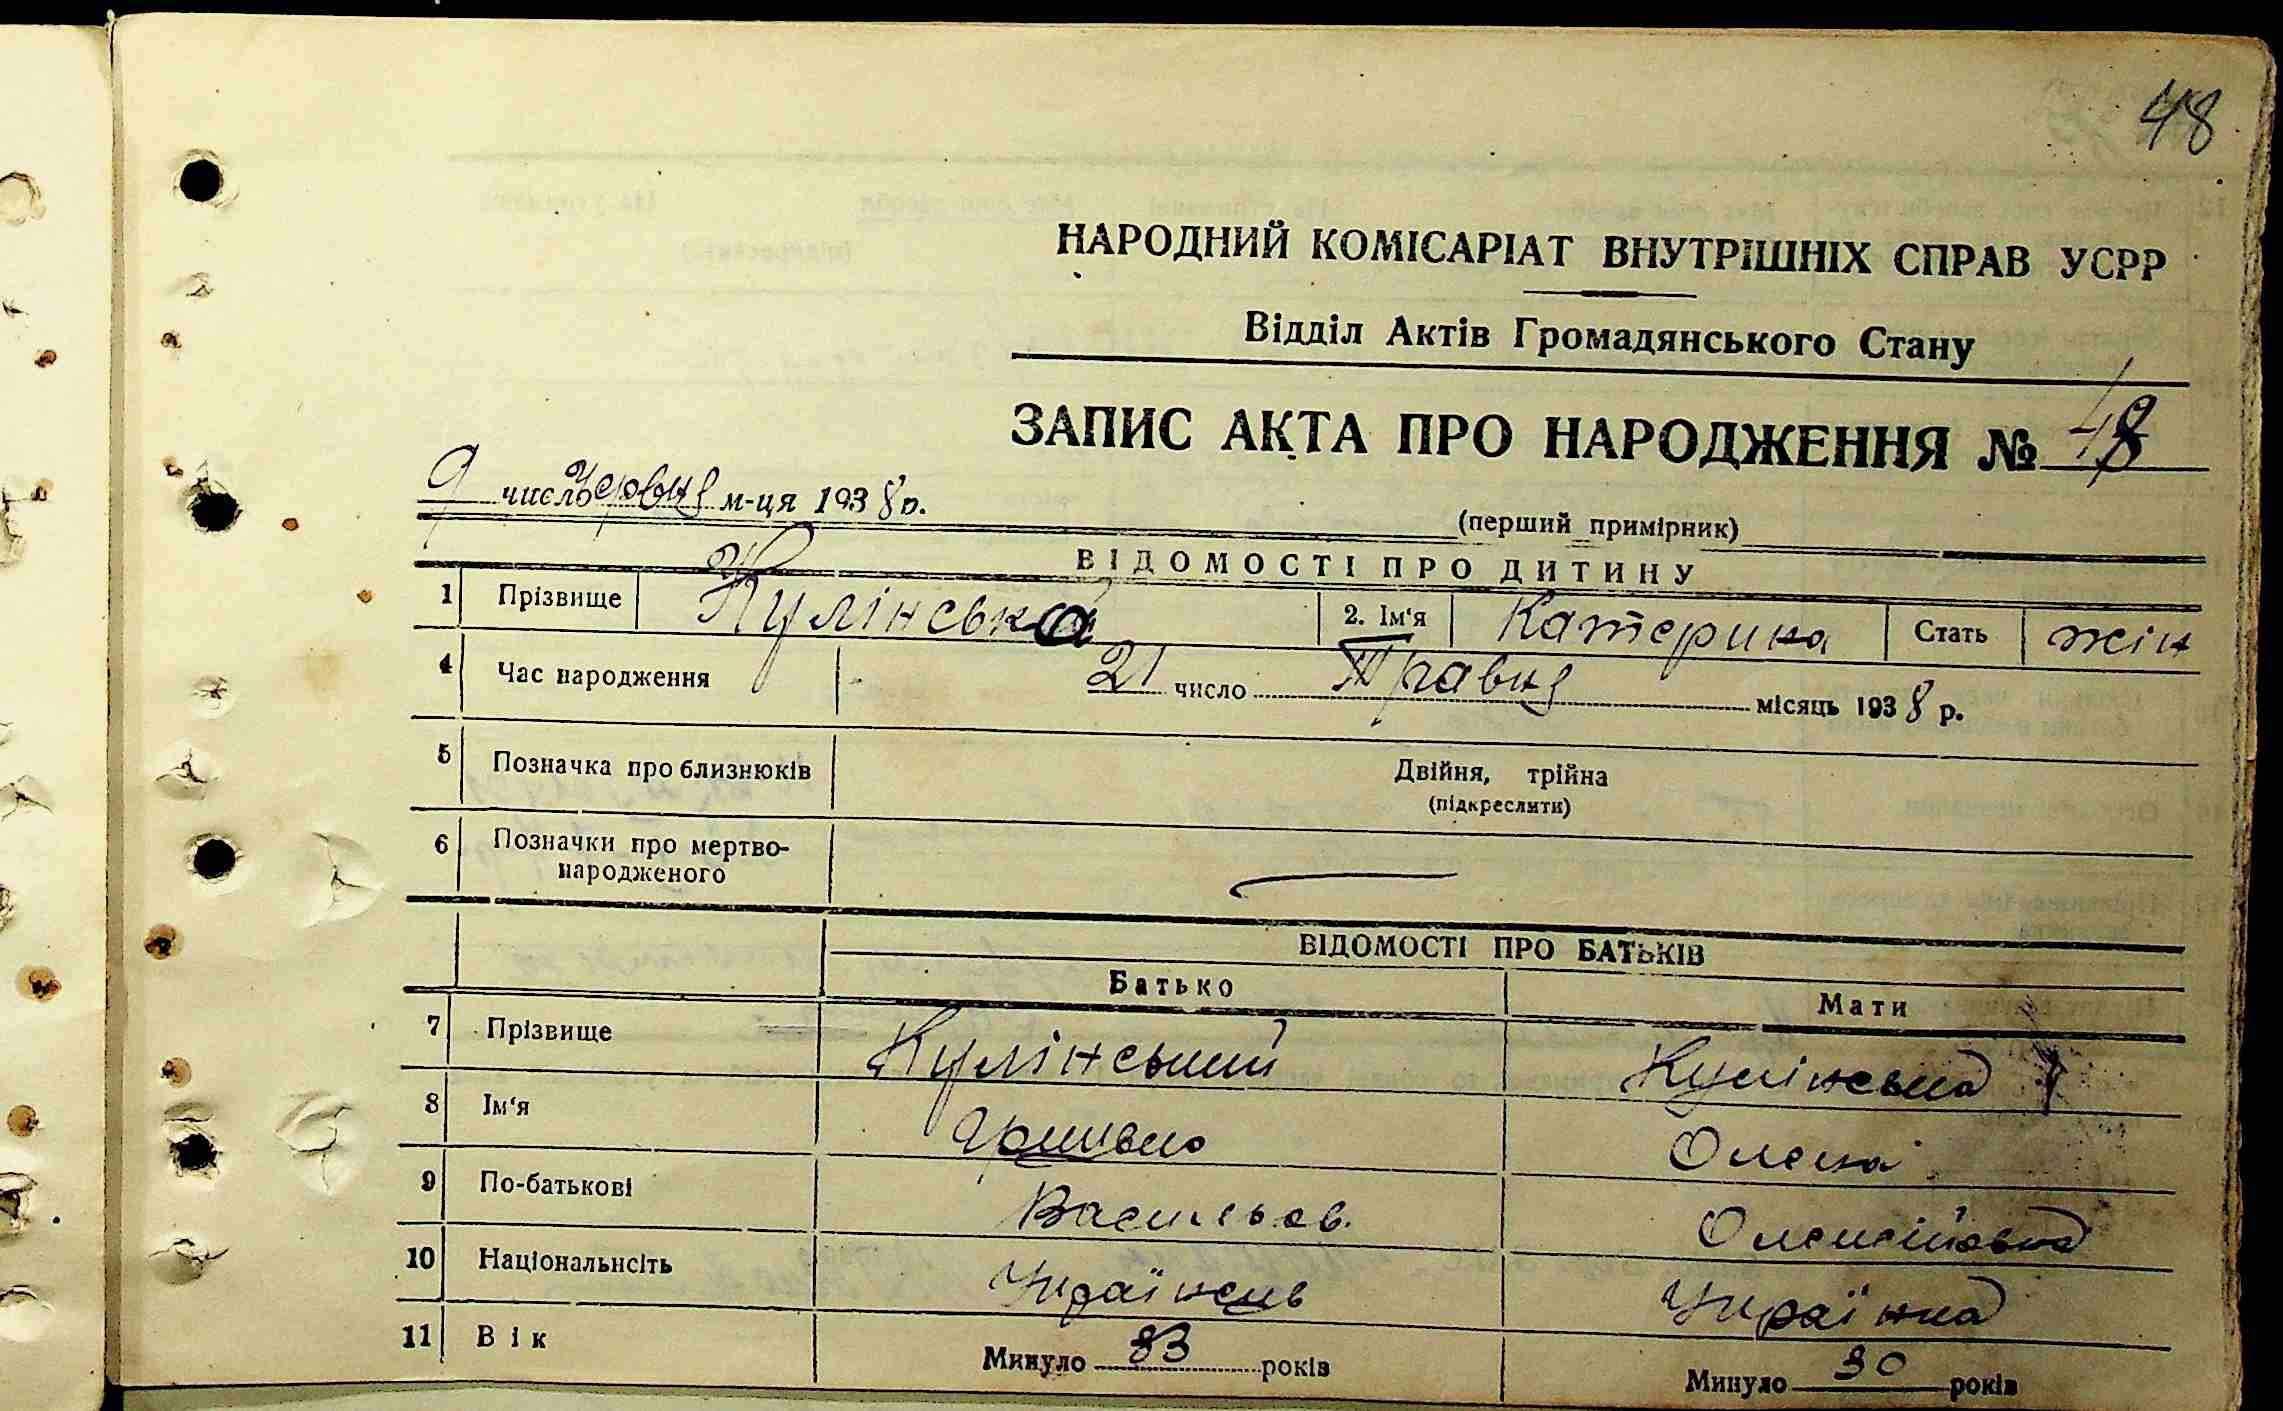 48
НАРОДНИЙ КОМІСАРІАТ ВНУТРІШНІХ СПРАВ УСРР
Відділ Актів Громадянського Стану
ЗАПИС АКТА ПРО НАРОДЖЕННЯ № 48
9 число Червня м-ця 1938 р.
(перший примірник)
ВІДОМОСТІ ПРО ДИТИНУ
1 Прізвище Кулінська 2. Ім'я Катерина Стать жін
4 Час народження 21 число Травня місяць 1938 р.
5 Позначка про близнюків Двійня, трійна
(підкреслити)
6 Позначки про мертво-
народженого
ВІДОМОСТІ ПРО БАТЬКІВ
Батько Мати
7 Прізвище Кулінський Кулінська
8 Ім'я Олена
9 По-батькові Васильов. Олексіївна
10 Національність Українець Українка
11 Вік Минуло 33 років Минуло 30 років